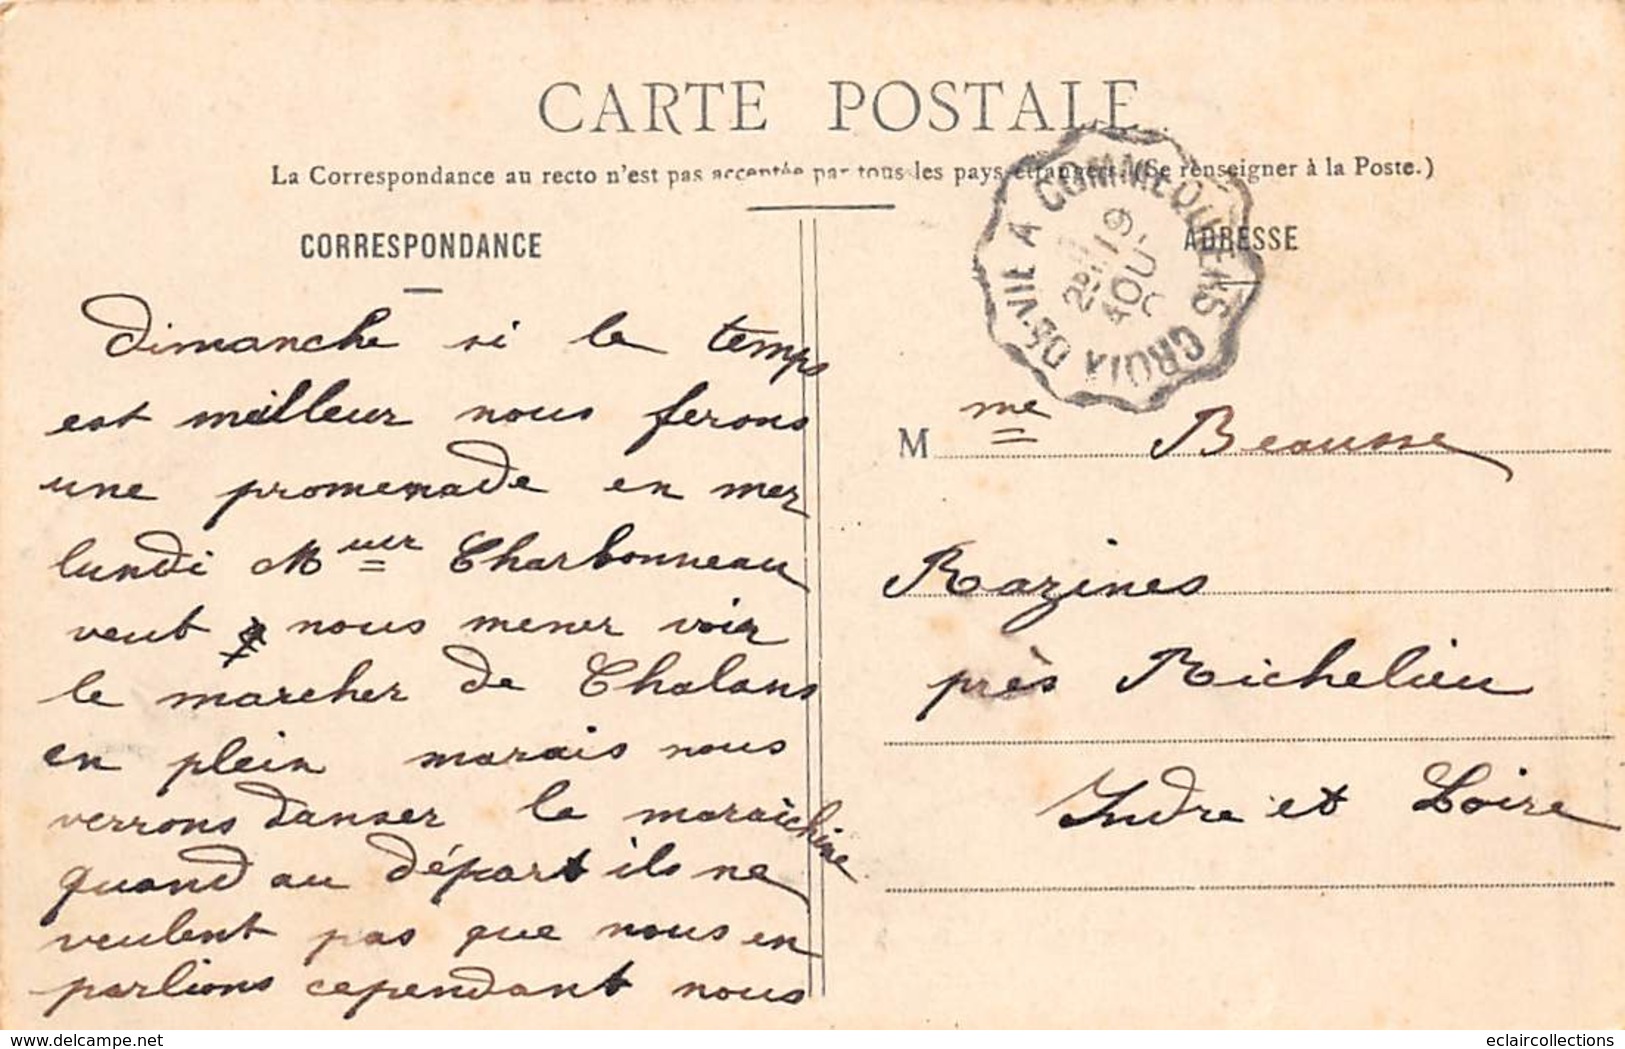 CARTE POSTALE
La Correspondance au recto n'est pas acceptée par tous les pays étrangers. (Se renseigner à la Poste.)
CORRESPONDANCE
Dimanche si le temps
est meilleur nous ferons
une promenade en mer
lundi Mʳ Charbonneau
veut nous mener voir
le marcher de Chalans
en plein marais nous
verrons danser la maraichine
quand au départ ils ne
veulent pas que nous en
parlions cependant nous
CROIX DE VIE A COMMEQUIERS
19
AOU
ADRESSE
Mme Beausse
Razines
près Richelieu
Indre et Loire
delcampe.net
eclaircollections